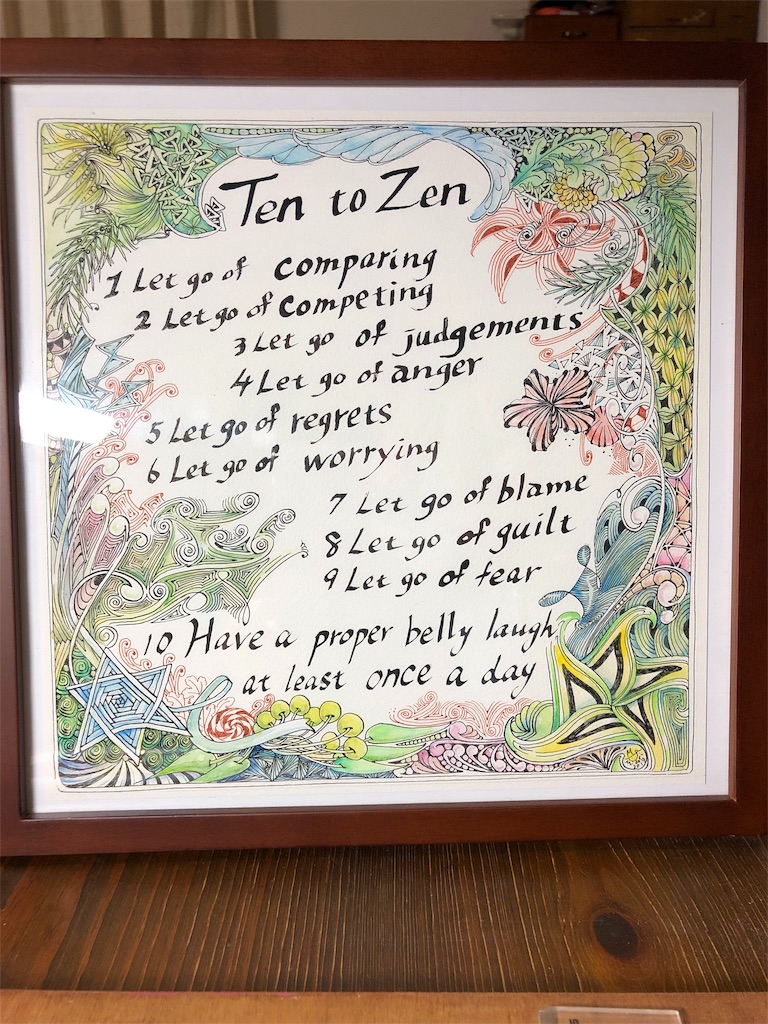 Ten to Zen
1 Let go of comparing
2 Let go of competing
3 Let go of judgements
4 Let go of anger
5 Let go of regrets
6 Let go of worrying
7 Let go of blame
8 Let go of guilt
9 Let go of fear
10 Have a proper belly laugh
at least once a day